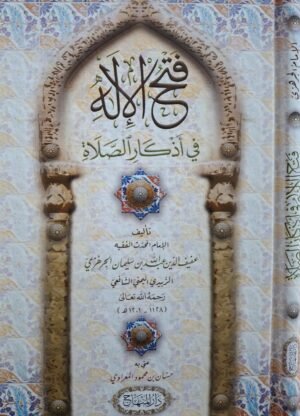 فتح الإله
في أذكار الصلاة
تأليف
الإمام المحدث الفقيه
عفيف الدين عبد الله بن سليمان الجرهزي
الزبيدي اليمني الشافعي
رحمه الله تعالى
(١١٢٨ - ١٢٠١ هـ)
عني به
حسان بن محمود المعراوي
دار المنهاج